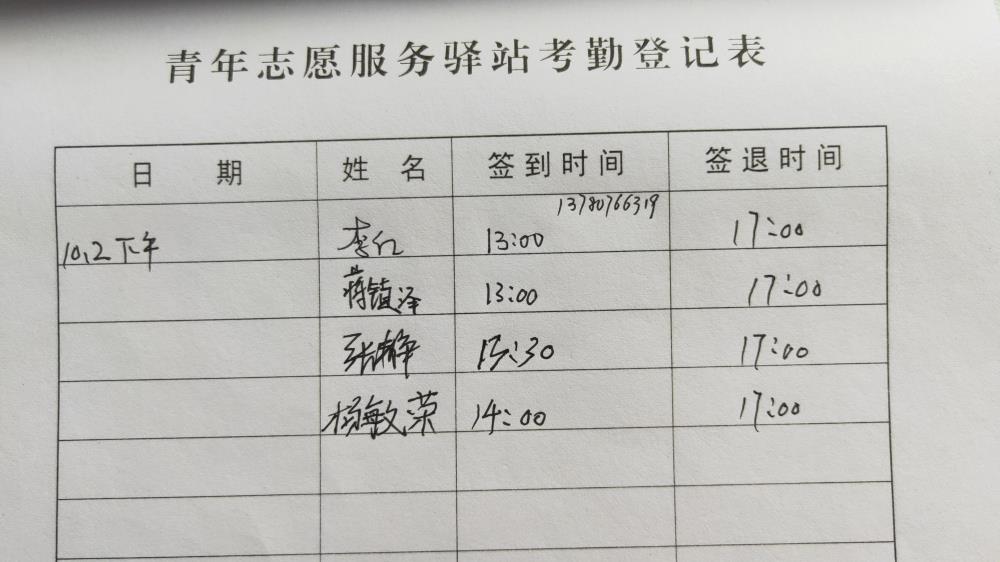 青年志愿服务驿站考勤登记表
日 期 姓 名 签到时间 签退时间
13780766319
10.2下午 李红 13:00 17:00
蒋镇泽 13:00 17:00
张静 13:30 17:00
杨敏荣 14:00 17:00